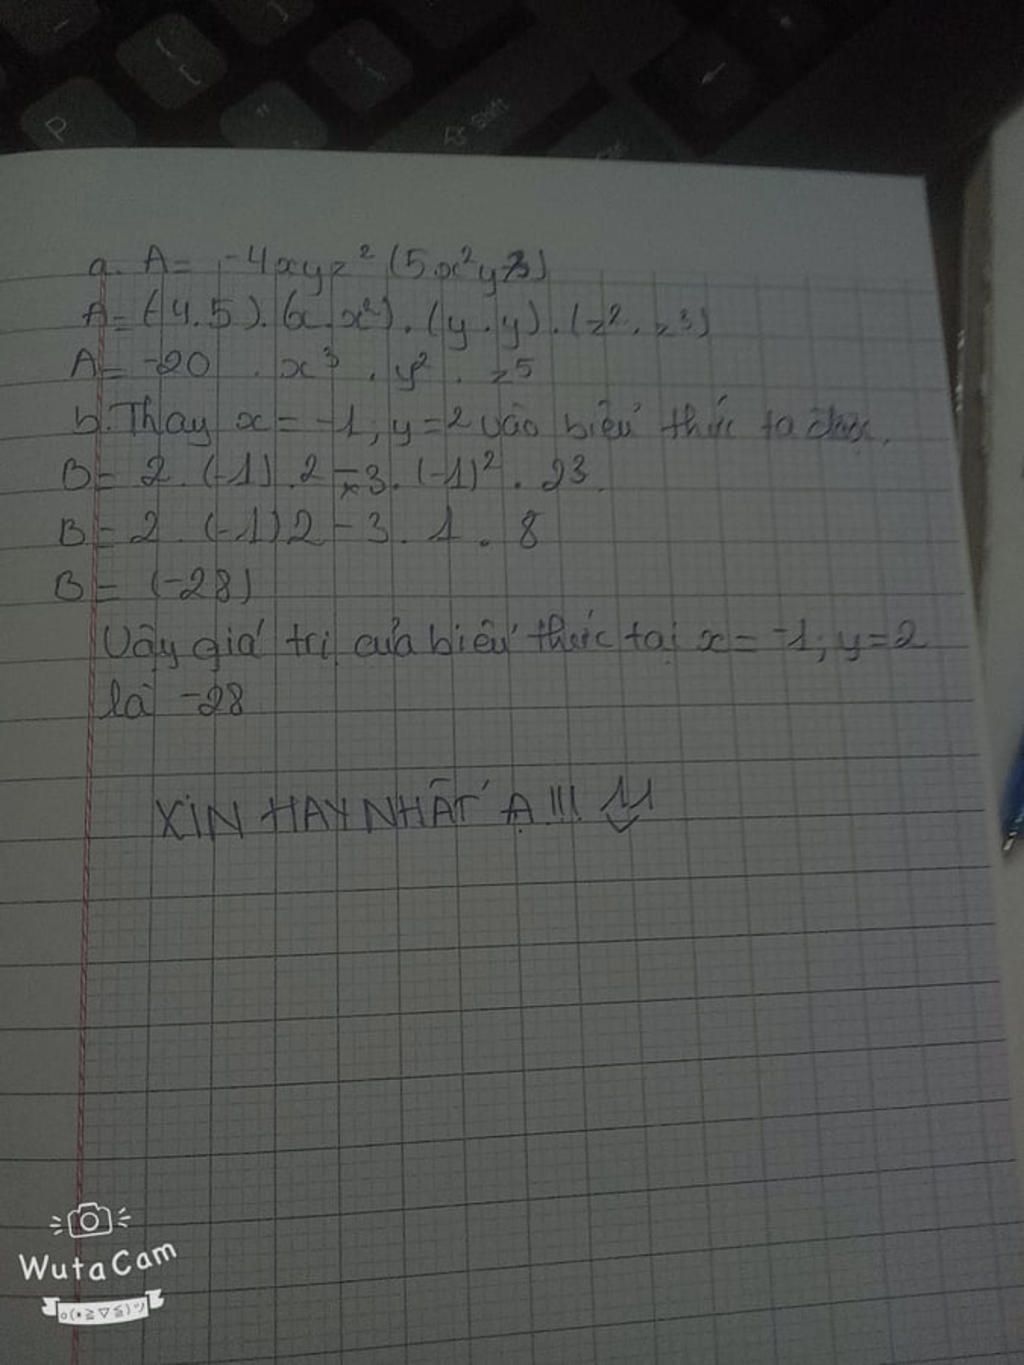 P
Shift
a. A = -4xyz² (5x²yz³)
A = (-4.5).(x.x²).(y.y).(z².z³)
A = -20 . x³ . y² . z⁵
b. Thay x = -1; y=2 vào biểu thức ta được.
B = 2.(-1).2 - 3.(-1)².23.
B = 2.(-1)2 - 3.1.8
B = (-28)
Vậy giá trị của biểu thức tại x = -1; y=2
là -28
XIN HAY NHẤT Ạ!!!
WutaCam